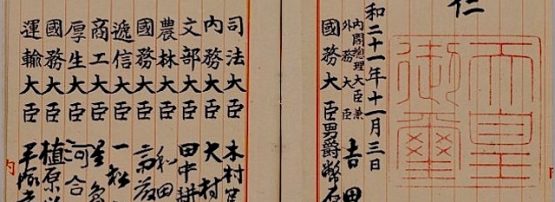 仁
天皇
御璽
和二十一年十一月三日
内閣総理大臣兼
外務大臣 吉田
国務大臣 男爵 幣原
司法大臣 木村篤
内務大臣 大村
文部大臣 田中耕
農林大臣 和田
国務大臣 斎藤
逓信大臣 一松
商工大臣 星島
厚生大臣 河合
国務大臣 植原
運輸大臣 平塚
内